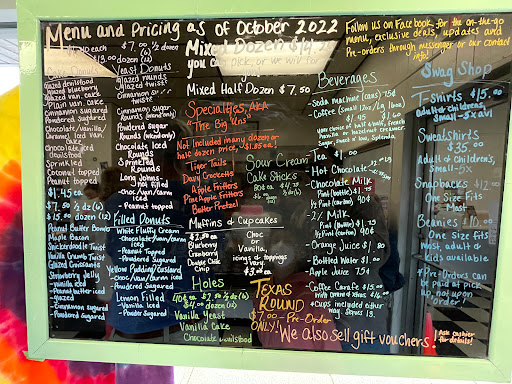 Menu and Pricing as of October 2022
Follow us on Facebook, for the on-the-go
menu, exclusive deals, updates and
Pre-orders through messenger or our contact
info!
each $ 7.00 ½ dozen
dozen
glazed devilsfood
glazed blueberry
glazed van. cake
Plain van. cake
Cinnamon sugared
Powdered sugared
Chocolate/vanilla/
Caramel iced van.
Cake
Chocolate iced
devilsfood
Sprinkled
Coconut topped
Peanut topped
$1.45 ea
$7.50 ½ dz (6)
$15.00 dozen (12)
Peanut Butter Bomb
Maple Bacon
Snickerdoodle Twist
Vanilla Crumb Twist
Glazed Croissants
Strawberry Jelly
-vanilla iced
-Peanut butter iced
-glazed
-Cinnamon sugared
-Powdered sugared
Yeast Donuts
glazed rounds
glazed twists
Cinnamon sugar
Rounds
Powdered Sugar
Rounds
Chocolate Iced
Rounds
Sprinkled
Rounds
Long Johns
-no filled
-Choc/van/carm
iced
-Peanut topped
Filled Donuts
White Fluffy Cream
-Chocolate/van/carm
iced
-Peanut Topped
-Powdered Sugared
Yellow Pudding/Custard
-Choc/van/carm iced
-Powdered Sugared
Lemon Filled
-Vanilla Iced
-Powder Sugared
Mixed Dozen $14
you can pick, or we will for
Mixed Half Dozen $ 7.50
Specialties, AKA
The Big 'Uns
Not Included many dozen or
half dozen price, $1.85 ea!
Tiger Tails
Davy Crocketts
Apple Fritters
Pineapple Fritters
Butter Pretzel
Sour Cream
Cake Sticks
Muffins & Cupcakes
$2.50 ea
Blueberry
Cranberry
Double Choc
Chip
Choc
or
Vanilla,
icings & toppings
vary
Holes
Vanilla Yeast
Vanilla Cake
Chocolate devilsfood
Texas
Round
$7.00 - Pre-Order
ONLY!
We also sell gift vouchers!
Ask cashier
for details!
Beverages
-Soda machine (cans) 75¢
-Coffee (Small 12oz/Lg 16oz)
$1.45 $1.60
your choice of half & half, french
Vanilla or hazelnut creamer,
Sugar, sweet n' low, Splenda
Tea $1.00
Hot Chocolate
Chocolate Milk
Pint (bottle) $1.75
½ Pint (carton) 90¢
-2% Milk
Pint (Bottle) $1.75
½ Pint (carton) 90¢
-Orange Juice
-Bottled Water $1.00
-Apple Juice 75¢
-Coffee Carafe $15.00
*Cups included either
way. Serves 13.
Swag Shop
T-Shirts $15.00
Adult & children's,
Small-5x avl
Sweatshirts
$35.00
Adult & Children's,
Small-5x
Snapbacks $12.00
One Size Fits
Most
Beanies $10.00
One Size Fits
Most, adult &
kids available
*Pre-Orders can
be paid at pick
up, not upon
order!